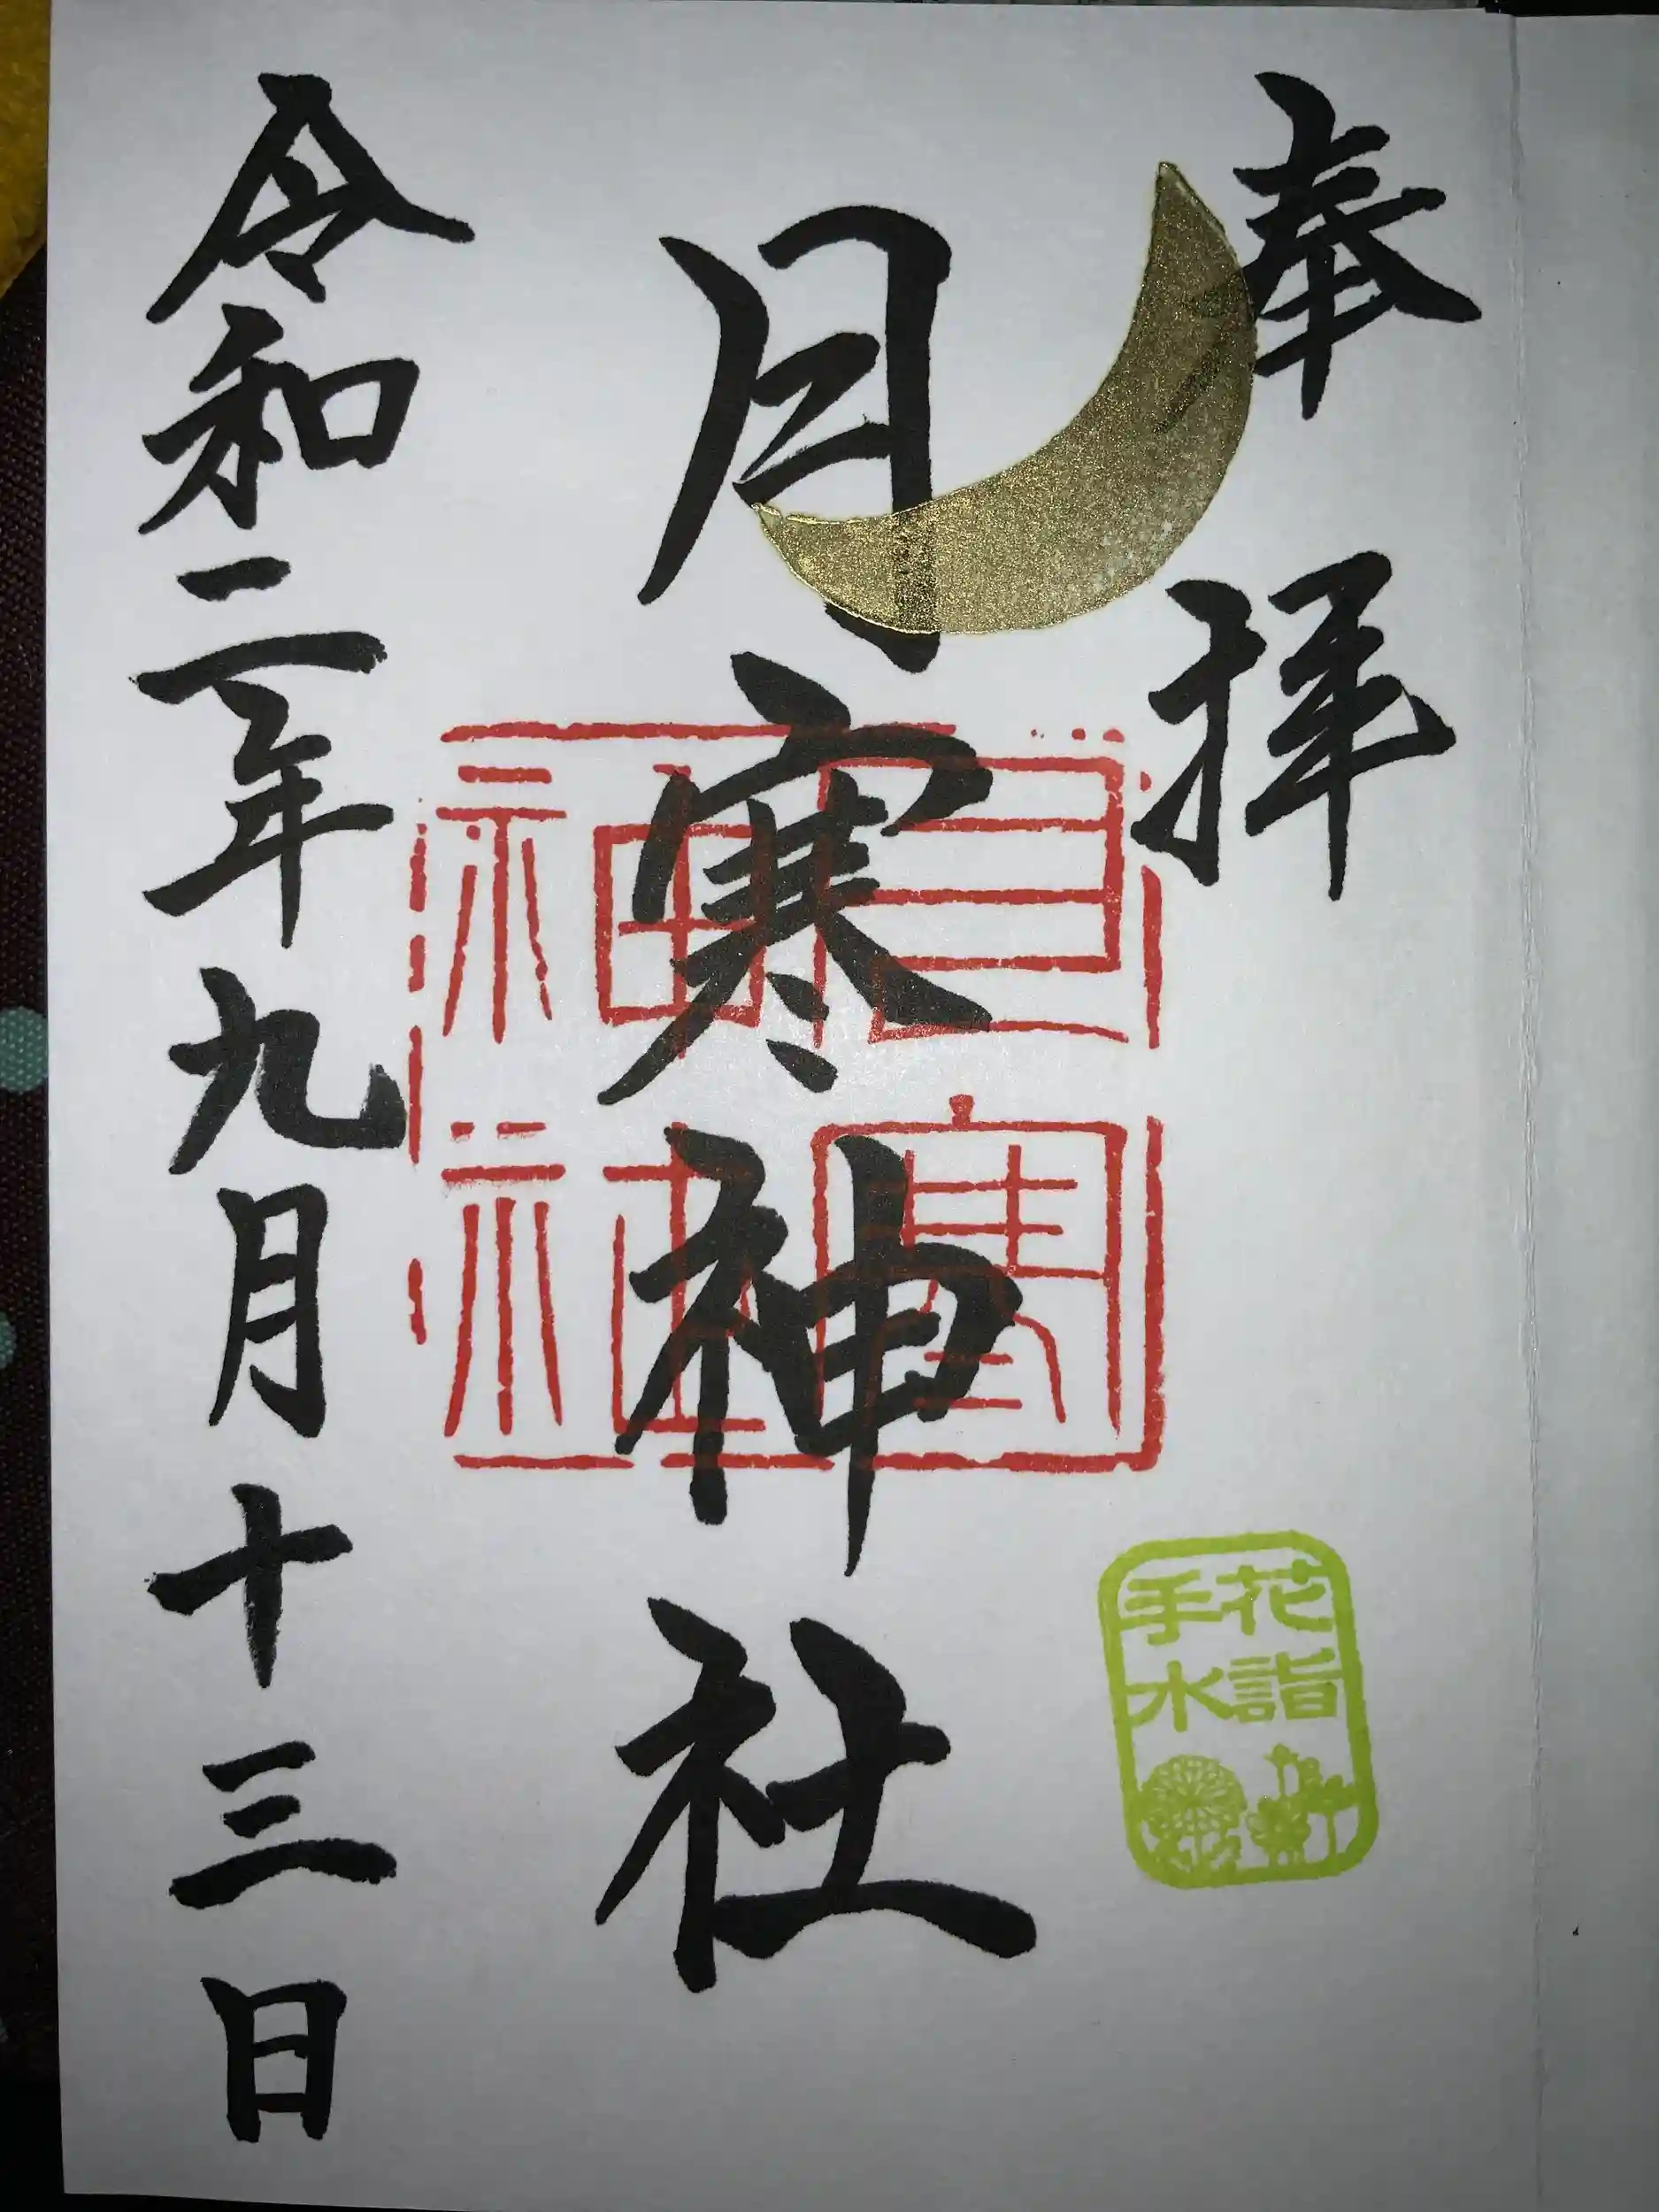 奉拝
月寒神社
月寒
神社
花詣
手水
令和二年九月十三日